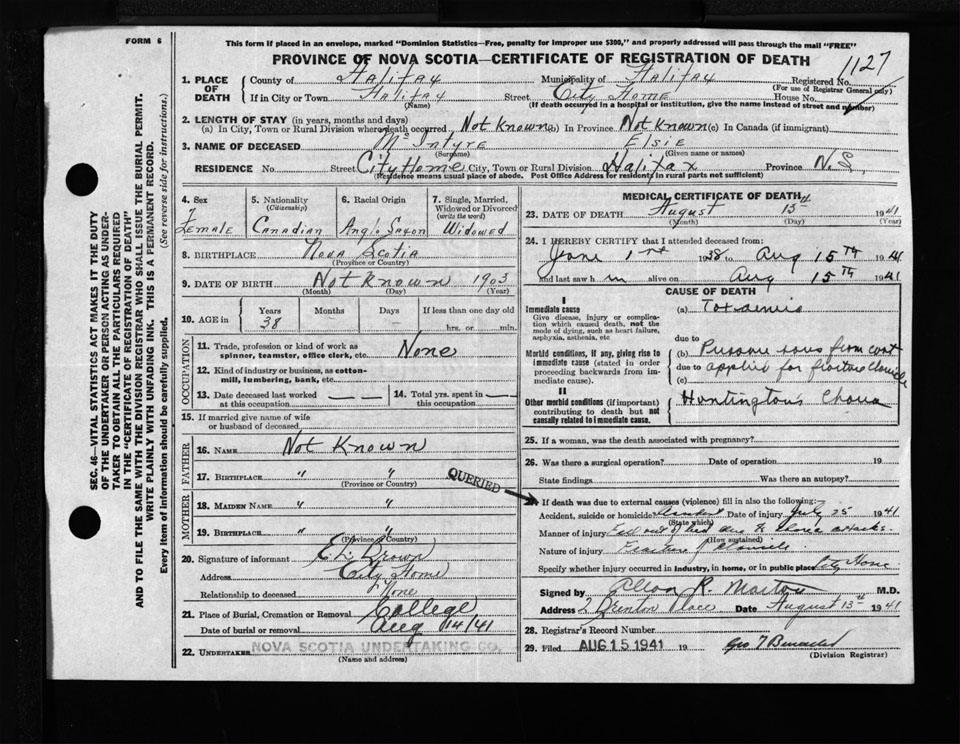 FORM 6
This form if placed in an envelope, marked "Dominion Statistics—Free, penalty for improper use $300," and properly addressed will pass through the mail "FREE"
PROVINCE OF NOVA SCOTIA—CERTIFICATE OF REGISTRATION OF DEATH
1127
1. PLACE OF DEATH County of Halifax Municipality of Halifax Registered No.
(For use of Registrar General only)
If in City or Town Halifax Street City Home House No.
(Name) (If death occurred in a hospital or institution, give the name instead of street and number)
2. LENGTH OF STAY (in years, months and days)
(a) In City, Town or Rural Division where death occurred Not Known (b) In Province Not Known (c) In Canada (if immigrant)
3. NAME OF DECEASED McIntyre Elsie
(Surname) (Given name or names)
RESIDENCE No. Street City Home City, Town or Rural Division Halifax Province N.S.
(Residence means usual place of abode. Post Office Address for residents in rural parts not sufficient)
4. Sex Female
5. Nationality (Citizenship) Canadian
6. Racial Origin Anglo Saxon
7. Single, Married, Widowed or Divorced (write the word) Widowed
8. BIRTHPLACE Nova Scotia
(Province or Country)
9. DATE OF BIRTH Not Known 1903
(Month) (Day) (Year)
10. AGE in Years 38 Months Days If less than one day old
hrs. or min.
OCCUPATION
11. Trade, profession or kind of work as spinner, teamster, office clerk, etc. None
12. Kind of industry or business, as cotton-mill, lumbering, bank, etc.
13. Date deceased last worked at this occupation — —
14. Total yrs. spent in this occupation — —
15. If married give name of wife or husband of deceased
FATHER
16. NAME Not Known
17. BIRTHPLACE " "
(Province or Country)
MOTHER
18. MAIDEN NAME " "
19. BIRTHPLACE " "
(Province or Country)
20. Signature of informant E. L. Brown
Address City Home
Relationship to deceased None
21. Place of Burial, Cremation or Removal College
Date of burial or removal Aug 14/41
22. UNDERTAKER NOVA SCOTIA UNDERTAKING CO.
(Name and address)
MEDICAL CERTIFICATE OF DEATH
23. DATE OF DEATH August 13th 1941
(Month) (Day) (Year)
24. I HEREBY CERTIFY that I attended deceased from:
June 1st 1938 to Aug 15TH 1941
and last saw h m alive on Aug 15TH 1941
CAUSE OF DEATH
I
Immediate cause
Give disease, injury or complication which caused death, not the mode of dying, such as heart failure, asphyxia, asthenia, etc
(a) Toxaemia
due to
Morbid conditions, if any, giving rise to immediate cause (stated in order proceeding backwards from immediate cause).
(b) Pressure sores from cast
due to applied for fracture clavicle
(c)
II
Other morbid conditions (if important) contributing to death but not causally related to immediate cause.
Huntington's Chorea
25. If a woman, was the death associated with pregnancy?
26. Was there a surgical operation? Date of operation 19
State findings Was there an autopsy?
QUERIED
27. If death was due to external causes (violence) fill in also the following:
Accident, suicide or homicide Accident Date of injury July 25 1941
(State which)
Manner of injury Fell out of bed due to chorea attacks.
(How sustained)
Nature of injury Fracture Clavicle.
Specify whether injury occurred in industry, in home, or in public place City Home
Signed by Allan R. Morton M.D.
Address 2 Brenton Place Date August 13th 1941
28. Registrar's Record Number
29. Filed AUG 15 1941 19
(Division Registrar)
SEC. 46—VITAL STATISTICS ACT MAKES IT THE DUTY
OF THE UNDERTAKER OR PERSON ACTING AS UNDER-
TAKER TO OBTAIN ALL THE PARTICULARS REQUIRED
IN THE "CERTIFICATE OF REGISTRATION OF DEATH"
AND TO FILE THE SAME WITH THE DIVISION REGISTRAR WHO SHALL ISSUE THE BURIAL PERMIT.
WRITE PLAINLY WITH UNFADING INK. THIS IS A PERMANENT RECORD.
Every item of information should be carefully supplied. (See reverse side for instructions.)